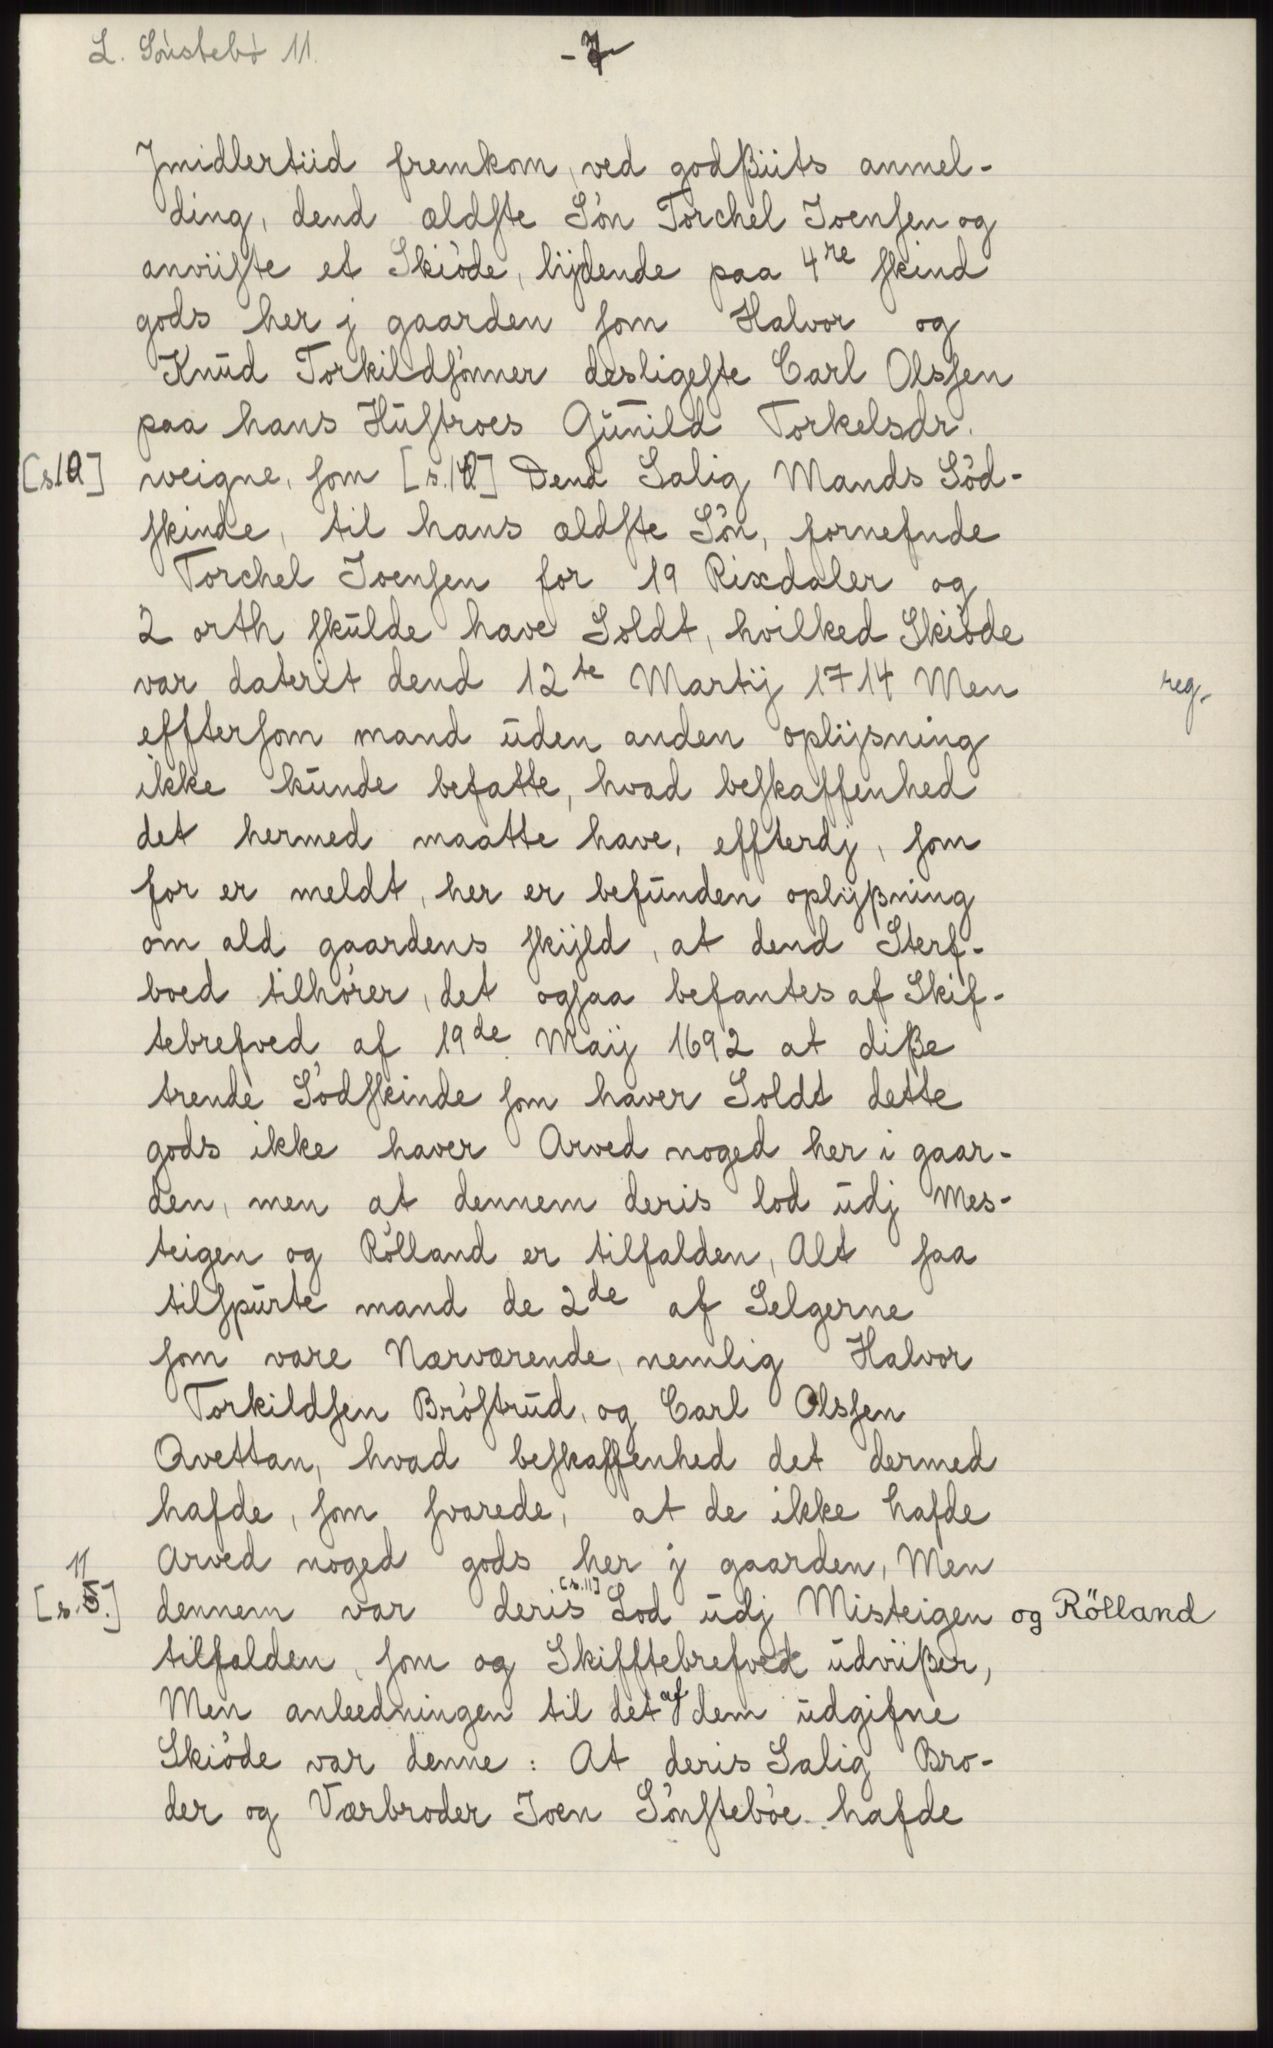 L. Sönstebö 11.
- 7 -
Jmidlertiid fremkom, ved godßiits anmel-
ding, dend ældste Sön Torchel Joensen og
anviiste et Skiöde, lijdende paa 4re skind
gods her j gaarden som Halvor og
Knud Torkildsönner desligeste Carl Olssen
paa hans Hustroes Gunild Torkelsdr.
[s.10] weigne, som [s.10] Dend Salig Mands Söd-
skinde, til hans ældste Sön, fornefnde
Torchel Joensen for 19 Rixdaler og
2 orth skulde have Soldt, hvilked Skiöde
var daterit dend 12te Martij 1714 Men reg.
efftersom mand uden anden oplijsning
ikke kunde befatte, hvad beskaffenhed
det hermed maatte have, effterdj, som
for er meldt, her er befunden oplijßning
om ald gaardens skijld, at dend Sterf-
boed tilhörer, det ogsaa befantes af Skif-
tebrefved af 19de Maij 1692 at diße
trende Södskinde som haver Soldt dette
gods ikke haver Arved noged her i gaar-
den, men at dennem deris lod udj Mes-
teigen og Rölland er tilfalden, Alt saa
tilspurte mand de 2de af Selgerne
som vare Nærværende, nemlig Halvor
Torkildsen Bröstrud, og Carl Olssen
Qvettan, hvad beskaffenhed det dermed
hafde, som svarede, at de ikke hafde
Arved noged gods her j gaarden, Men
[s. 11] dennem var deris [s.11] Lod udj Misteigen og Rölland
tilfalden, som og Skifftebrefved udviißer,
Men anleedningen til det af dem udgifne
Skiöde var denne: At deris Salig Bro-
der og Værbroder Joen Sönsteböe hafde